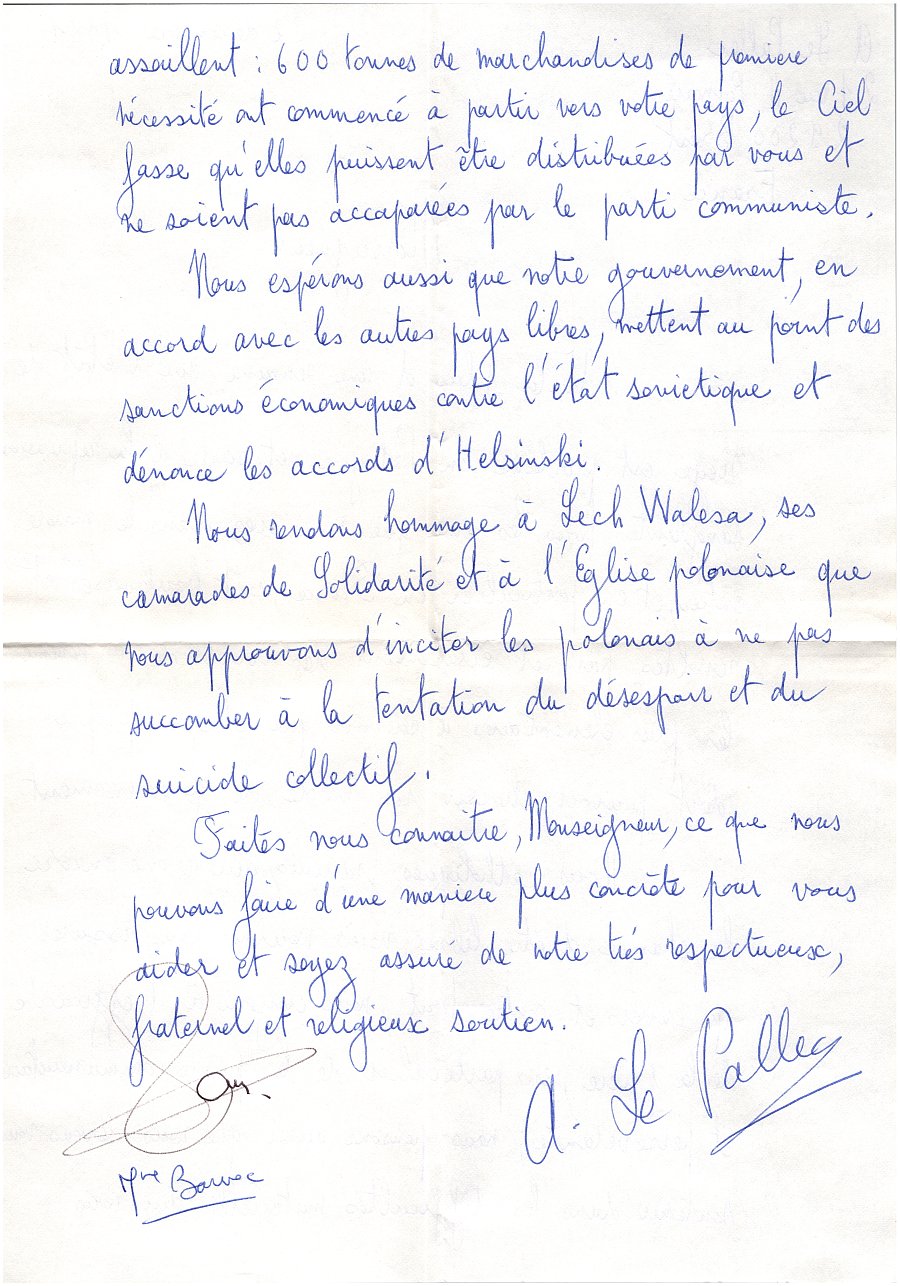 assaillent : 600 tonnes de marchandises de premiere
nécessité ont commencé à partir vers votre pays, le Ciel
fasse qu'elles puissent être distribuées par vous et
ne soient pas accaparées par le parti communiste.
Nous espérons aussi que notre gouvernement, en
accord avec les autres pays libres, mettent au point des
sanctions économiques contre l'état soviétique et
dénonce les accords d'Helsinski.
Nous rendons hommage à Lech Walesa, ses
camarades de Solidarité et à l'Eglise polonaise que
nous approuvons d'inciter les polonais à ne pas
succomber à la tentation du désespoir et du
suicide collectif.
Faites nous connaitre, Monseigneur, ce que nous
pouvons faire d'une maniere plus concrète pour vous
aider et soyez assuré de notre trés respectueux,
fraternel et religieux soutien.
A. Le Pallec